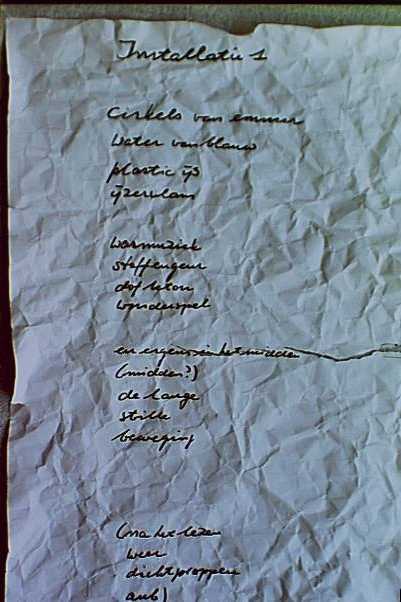 Installatie 1
cirkels van emmer
water van blauw
plastic ijs
ijzerdans
warmuziek
stoffengeur
dof beton
wonderspel
en ergens in het midden
(midden?)
de lange
stille
beweging
(na het lezen
weer
dichtproppen
aub)